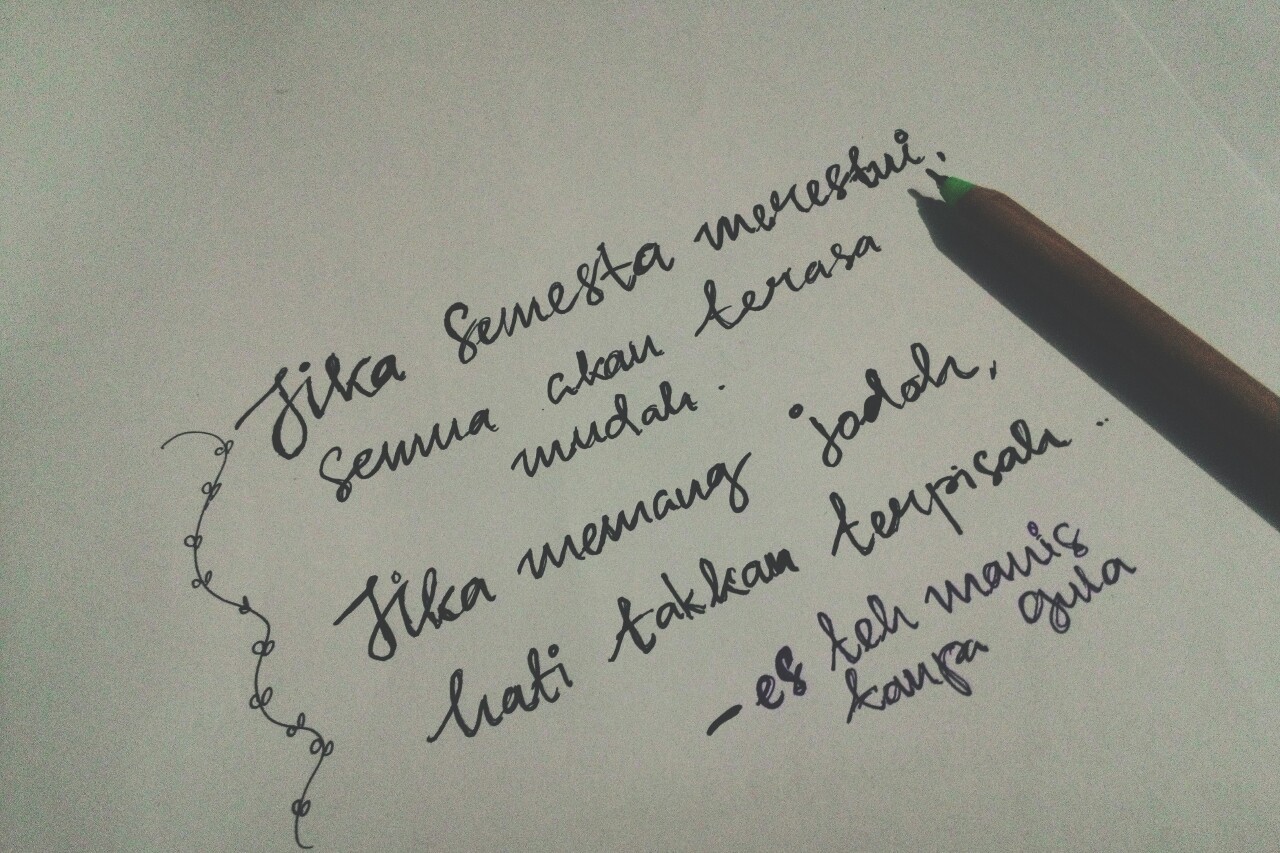 Jika semesta merestui,
semua akan terasa
mudah.
Jika memang jodoh,
hati takkan terpisah..
- es teh manis
tanpa gula